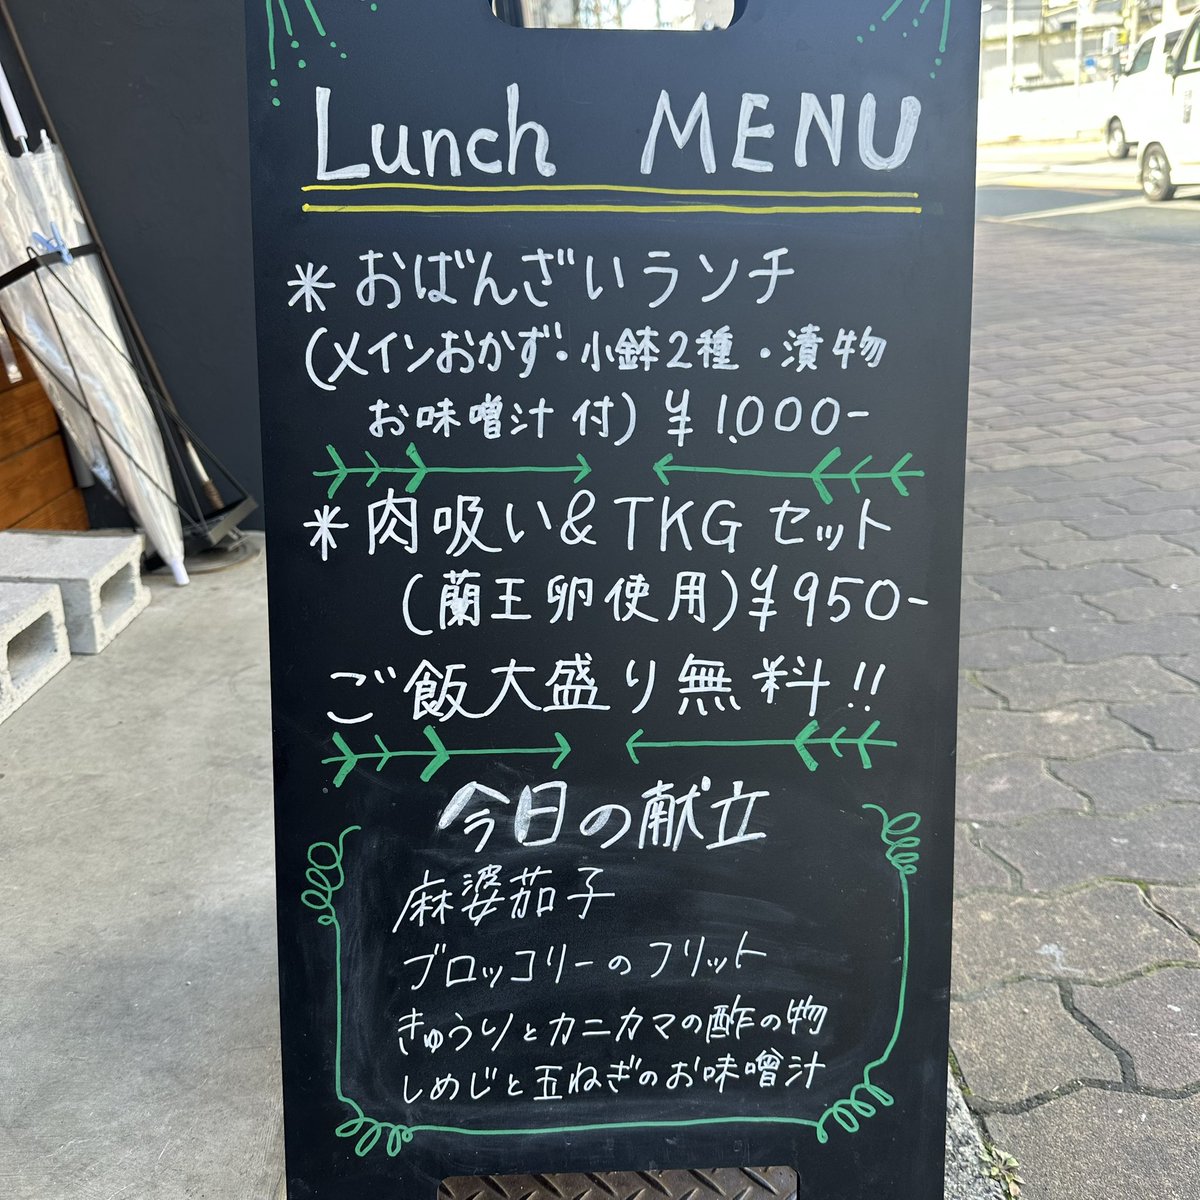 Lunch MENU
*おばんざいランチ
(メインおかず・小鉢2種・漬物
お味噌汁付)¥1,000-
*肉吸い&TKGセット
(蘭王卵使用)¥950-
ご飯大盛り無料!!
今日の献立
麻婆茄子
ブロッコリーのフリット
きゅうりとカニカマの酢の物
しめじと玉ねぎのお味噌汁